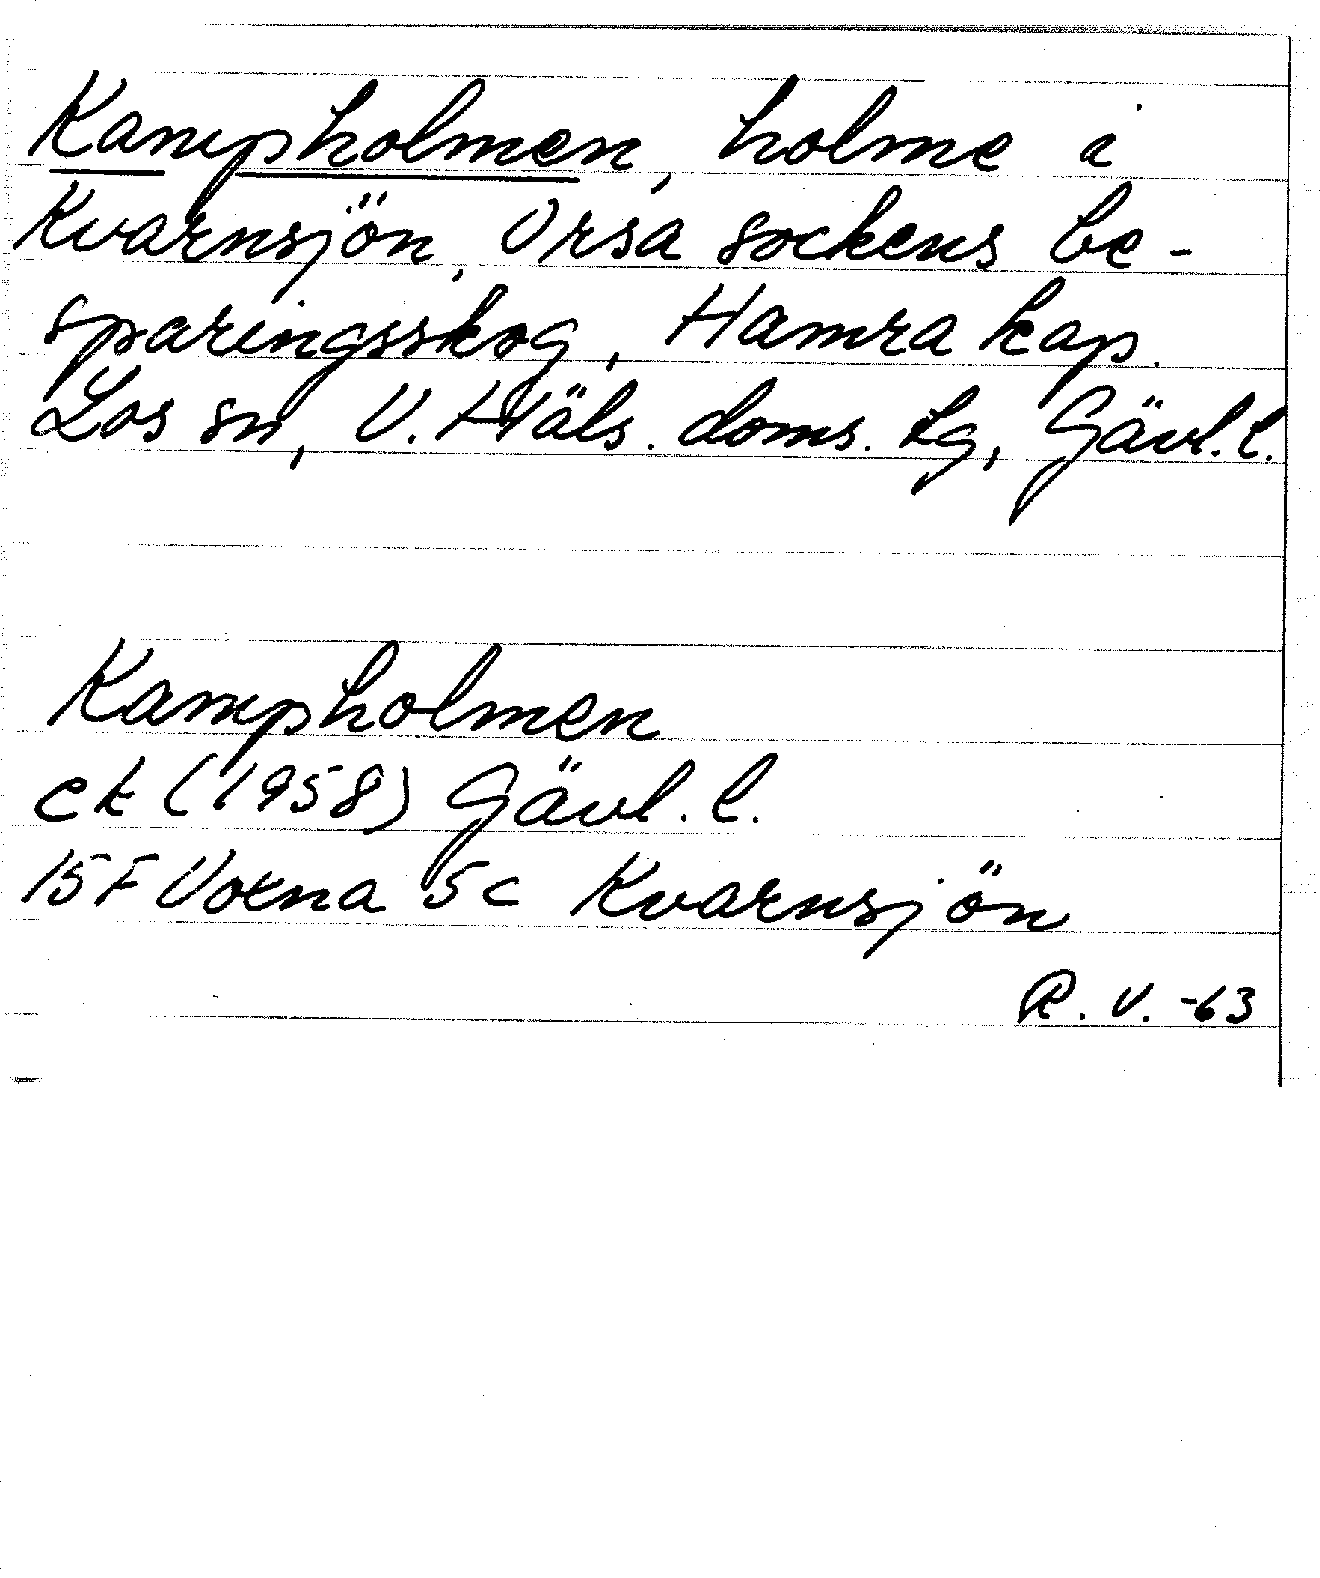 Kampholmen, holme i
Kvarnsjön, Orsa sockens be-
sparingsskog, Hamra kap.
Los sn, V. Häls. doms. tg, Gävl. l.
Kampholmen
ek (1958) Gävl. l.
15F Voxna 5c Kvarnsjön
R. V. -63